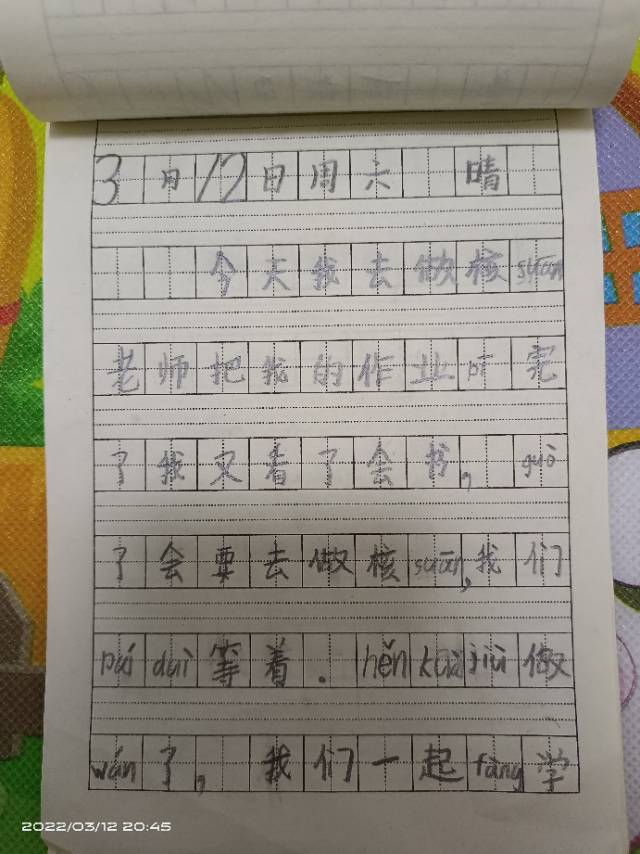 3月12日周六 晴
今天我去做核suān
老师把我的作业pī完
了我又看了会书, guò
了会要去做核suān,我们
pái duì等着. hěn kuài jiù 做
wán了, 我们一起fàng学
2022/03/12 20:45